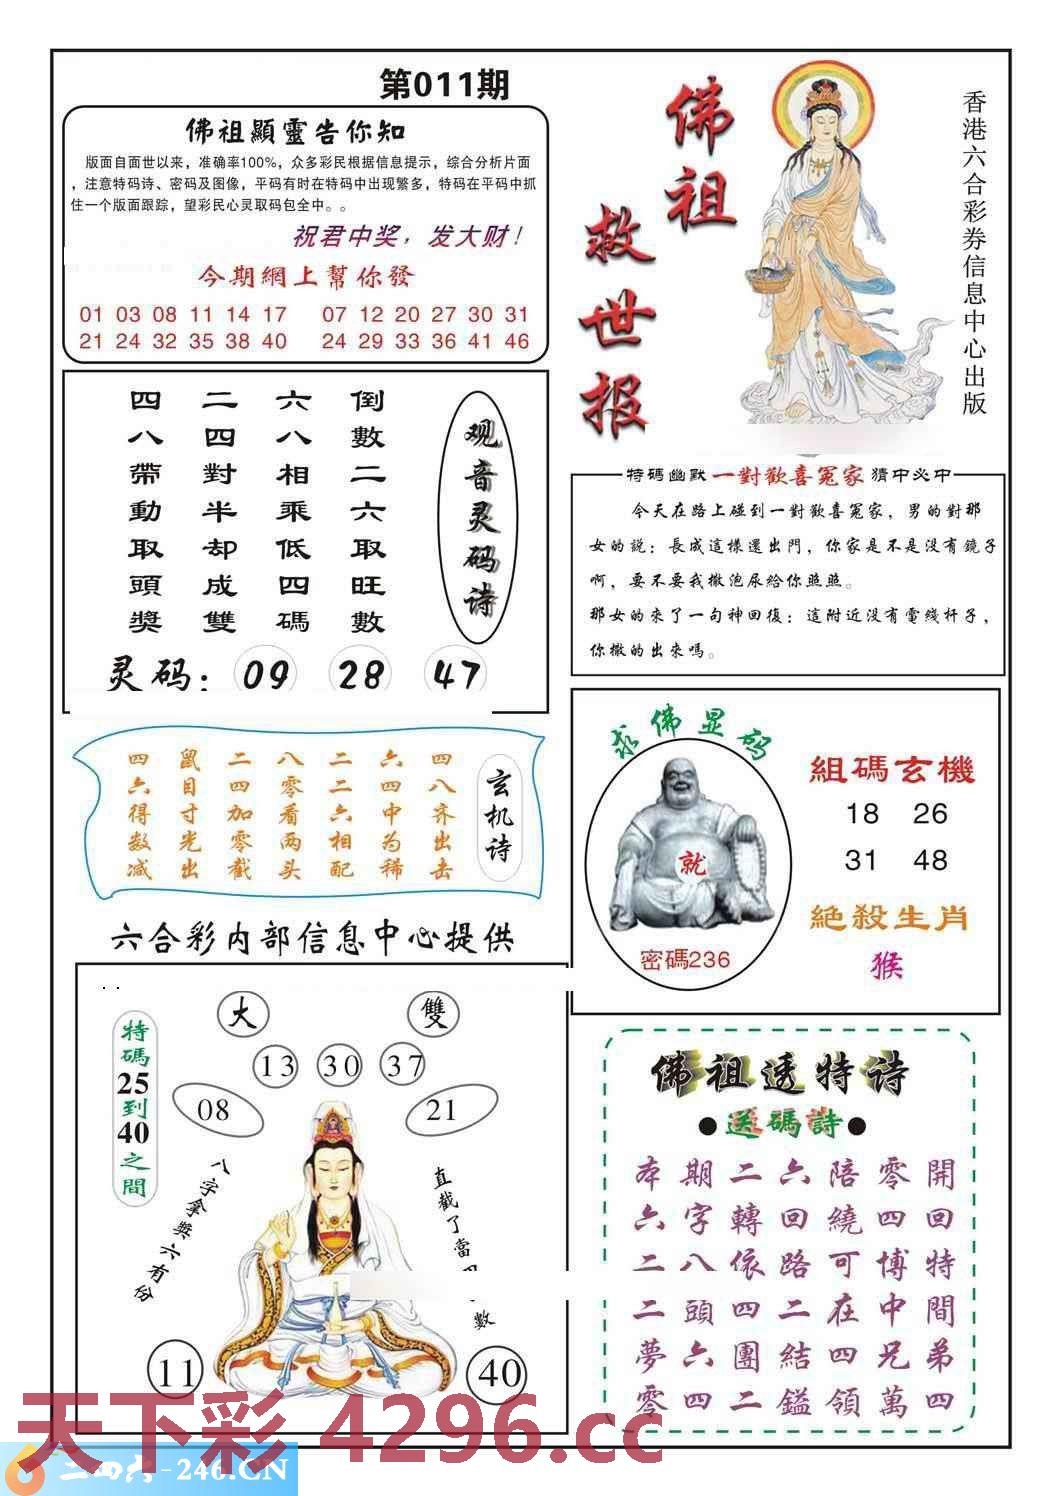 第011期
佛祖顯靈告你知
版面自面世以来，准确率100%，众多彩民根据信息提示，综合分析片面
，注意特码诗、密码及图像，平码有时在特码中出现繁多，特码在平码中抓
住一个版面跟踪，望彩民心灵取码包全中。。
祝君中奖，发大财！
今期網上幫你發
01 03 08 11 14 17 07 12 20 27 30 31
21 24 32 35 38 40 24 29 33 36 41 46
佛祖
救世报
香港六合彩券信息中心出版
观音灵码诗
倒數二六取旺數
六八相乘低四碼
二四對半却成雙
四八帶動取頭獎
灵码：09 28 47
特碼幽默 一對歡喜冤家 猜中必中
今天在路上碰到一對歡喜冤家，男的對那
女的説：長成這樣還出門，你家是不是没有鏡子
啊，要不要我撒泡尿給你照照。
那女的來了一句神回復：這附近没有電线杆子，
你撒的出來嗎。
玄机诗
四八齐出击
六四中为稀
二二六相配
八零看两头
二四加零截
鼠目寸光出
四六得数减
求佛显码
就
密碼236
組碼玄機
18 26
31 48
絕殺生肖
猴
六合彩内部信息中心提供
特碼25到40之間
大
雙
13
30
37
08
21
八字拿獎六有份
直截了當
數
11
40
佛祖透特诗
●送碼詩●
本期二六陪零開
六字轉回繞四回
二八依路可博特
二頭四二在中間
夢六團結四兄弟
零四二鎰領萬四
天下彩 4296.cc
二四六-246.CN